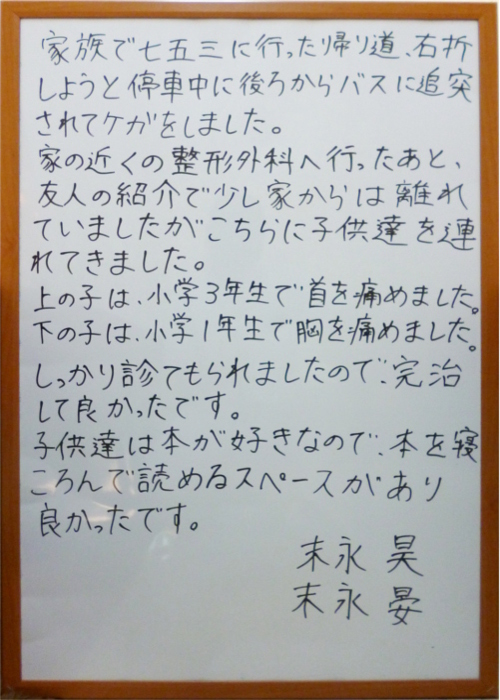 家族で七五三に行った帰り道、右折
しようと停車中に後ろからバスに追突
されてケガをしました。
家の近くの整形外科へ行ったあと、
友人の紹介で少し家からは離れ
ていましたがこちらに子供達を連
れてきました。
上の子は、小学3年生で首を痛めました。
下の子は、小学1年生で胸を痛めました。
しっかり診てもられましたので、完治
して良かったです。
子供達は本が好きなので、本を寝
ころんで読めるスペースがあり
良かったです。
末永 昊
末永 晏